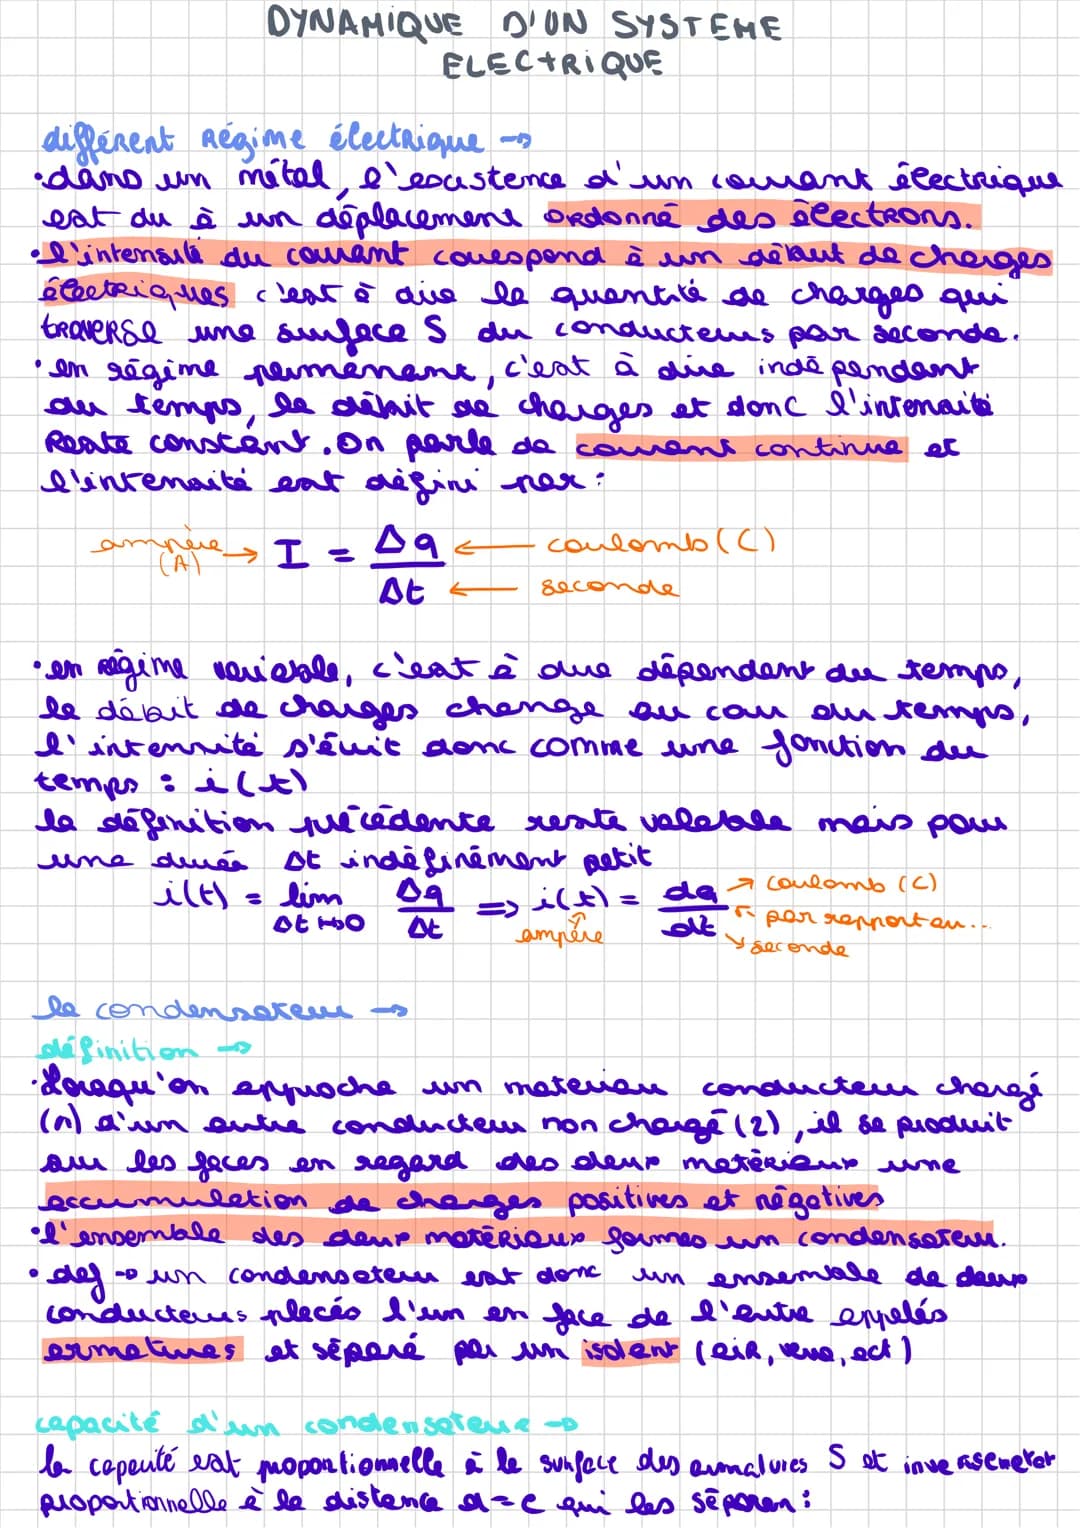 DYNAMIQUE D'UN SYSTEME
ELECTRIQUE
différent Régime électrique →
•dans un métal, l'existence d'un courant électrique
est du à un déplacement ordonné des électrons.
•l'intensité du courant correspond à un début de charges
électriques c'est à dire la quantité de charges qui
traverse une surface S du conducteurs par seconde.
•en régime permanent, c'est à dire indépendant
du temps, le débit de charges et donc l'intensité
Reste constant. On parle de courant continue et
l'intensité est défini par :
ampère (A) → I = Δq / Δt ← coulomb (C)
← seconde
•en régime variable, c'est à dire dépendant du temps,
le débit de charges change au cour du temps,
l'intensité s'écrit donc comme une fonction du
temps : i(t)
la définition précédente reste valable mais pour
une durée Δt indéfinément petit
i(t) = lim Δt↦0 Δq / Δt => i(t) = dq / dt
↗ coulomb (C)
par rapport au...
↘ seconde
ampère
le condensateur →
définition →
•Lorsqu'on approche un materiau conducteur chargé
(1) d'un autre conducteur non chargé (2), il se produit
sur les faces en regard des deux matériaux une
accumulation de charges positives et négatives
•l'ensemble des deux matériaux formes un condensateur.
•def → un condensateur est donc un ensemble de deux
conducteurs placés l'un en face de l'autre appelés
armatures et séparé par un isolant (air, verre, ect)
capacité d'un condensateur →
la capacité est proportionnelle à la surface des armatures S et
proportionnelle à la distance d=e qui les séparen :